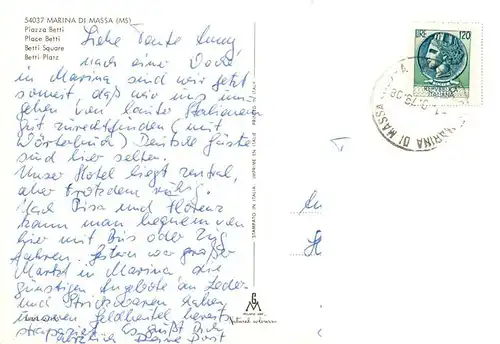 54037 MARINA DI MASSA (MS)
Piazza Betti
Place Betti
Betti Square
Betti Platz
Liebe Tante Anny,
nach eine Woche
in Marina sind wir jetzt
soweit daß wir uns um-
geben von lauter Italienern
gut zurechtfinden (mit
Wörterbuch) Deutsche Gäste
sind hier selten.
Unser Hotel liegt zentral,
aber trotzdem ruhig.
Nach Pisa und Florenz
kann man bequem von
hier mit Bus oder Zug
fahren. Gestern war großer
Markt in Marina, die
günstigen Angebote an Leder-
und Strickwaren haben
unseren Geldbeutel bereits
strapaziert. Es grüßt Dich
herzlich Deine
STAMPATO IN ITALIA IMPRIME EN ITALIE PRINTED IN ITALY
LIRE 120
MARINA DI MASSA